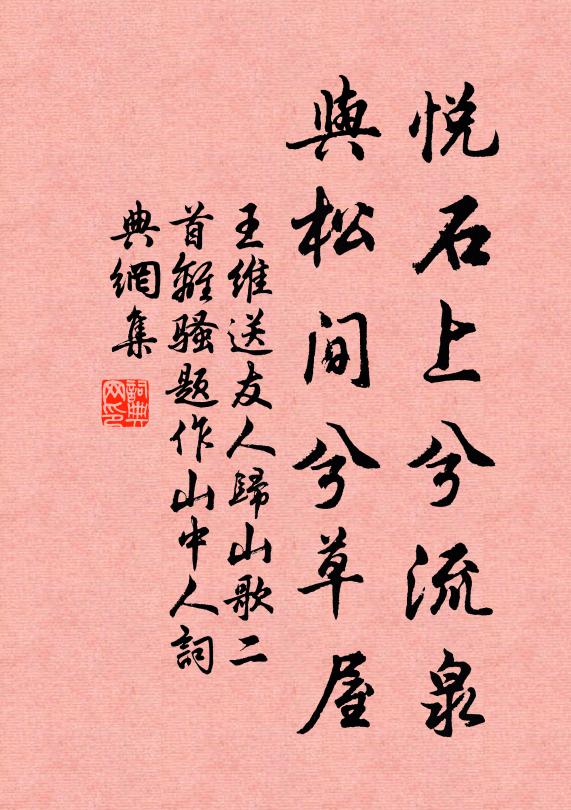 悦石上兮流泉
與松間兮草屋
王維送友人歸山歌二
首離騷題作山中人詞
典網集
詞典網印